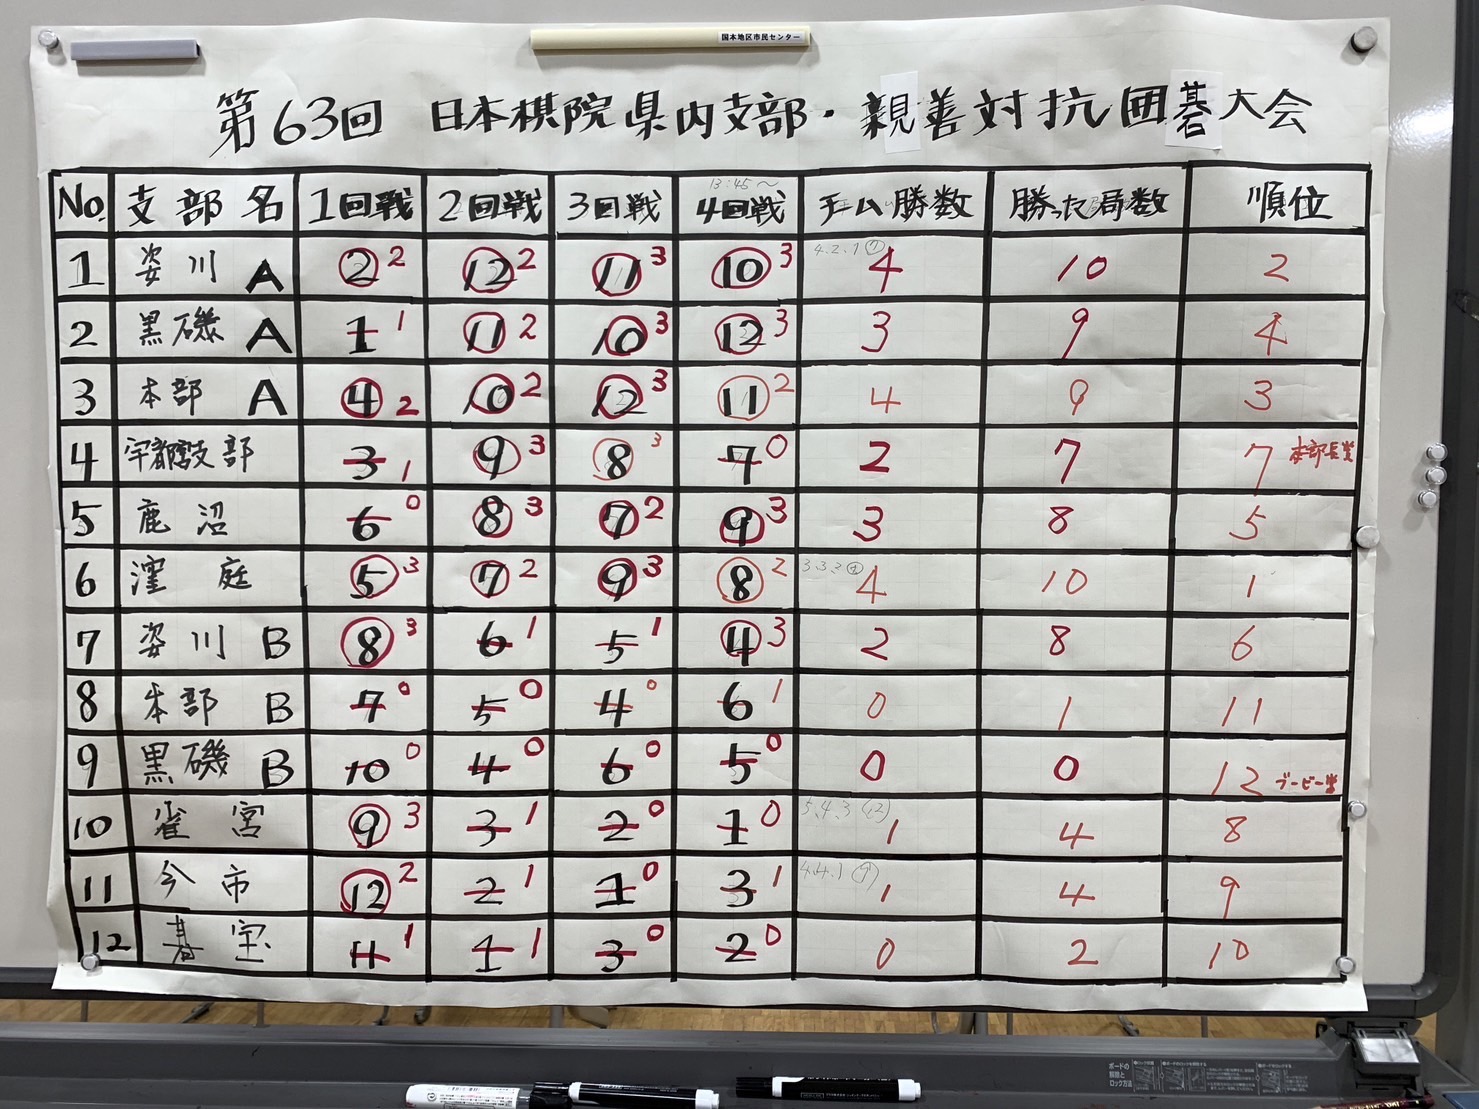 国本地区市民センター
第63回 日本棋院県内支部・親善対抗囲碁大会
13:45～
No. 支部名 1回戦 2回戦 3回戦 4回戦 チーム勝数 勝った局数 順位
1 姿川 A ② 2 ⑫ 2 ⑪ 3 ⑩ 3 4 10 2
2 黒磯 A 1 1 ⑪ 2 ⑩ 3 ⑫ 3 3 9 4
3 本部 A ④ 2 ⑩ 2 ⑫ 3 ⑪ 2 4 9 3
4 宇都宮支部 3 1 ⑨ 3 ⑧ 3 7 0 2 7 7 本部長賞
5 鹿沼 6 0 ⑧ 3 ⑦ 2 ⑨ 3 3 8 5
6 窪庭 ⑤ 3 ⑦ 2 ⑨ 3 ⑧ 2 4 10 1
7 姿川 B ⑧ 3 6 1 5 1 ④ 3 2 8 6
8 本部 B 7 0 5 0 4 0 6 1 0 1 11
9 黒磯 B 10 0 4 0 6 0 5 0 0 0 12 ブービー賞
10 雀宮 ⑨ 3 3 1 2 0 1 0 1 4 8
11 今市 ⑫ 2 2 1 1 0 3 1 1 4 9
12 碁宝 11 1 1 1 3 0 2 0 0 2 10